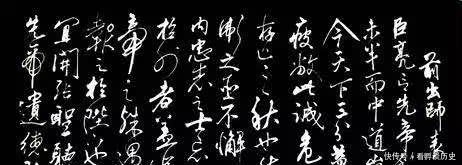 前出師表
臣亮言先帝
未半而中道
今天下三分益
疲敝此誠危
存亡之秋也然
衛之臣不懈
内忠志之士忘
於外者蓋追
帝之殊遇
報之於陛下
宜開張聖聽
先帝遺德
快传号 / 看爵爷历史